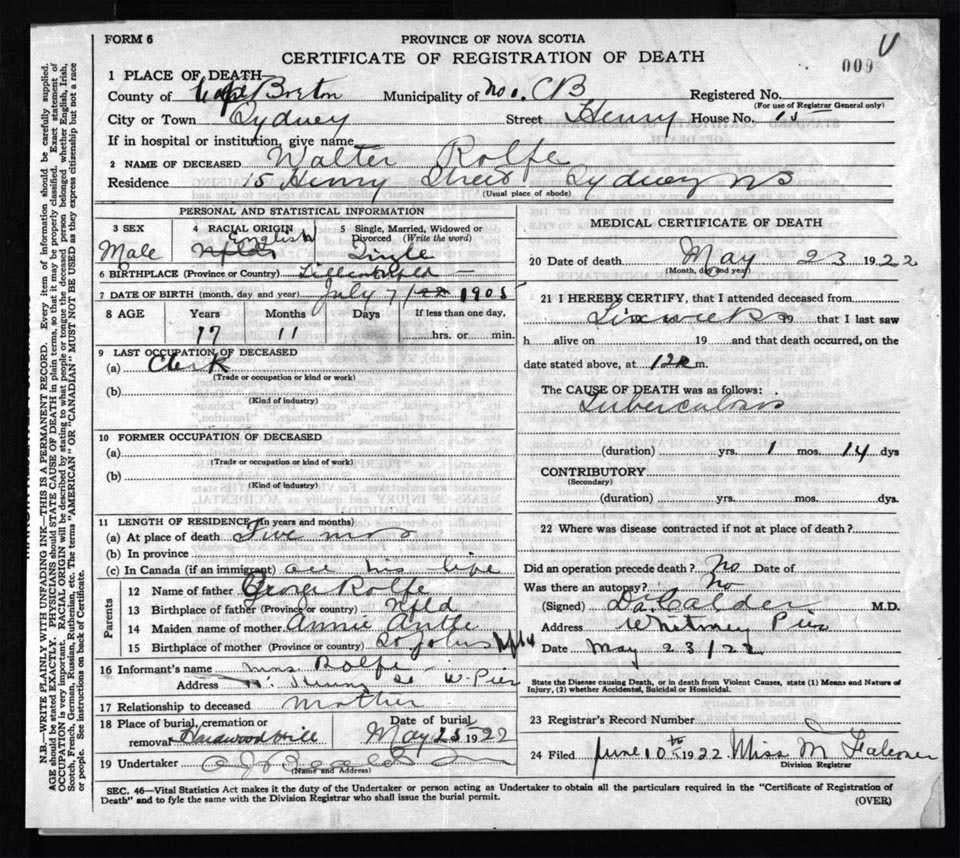 FORM 6
PROVINCE OF NOVA SCOTIA
CERTIFICATE OF REGISTRATION OF DEATH
009
1 PLACE OF DEATH—
County of Cape Breton Municipality of No 1. CB Registered No.
(For use of Registrar General only)
City or Town Sydney Street Henry House No. 15
If in hospital or institution, give name
2 NAME OF DECEASED Walter Rolfe
Residence 15 Henry Street Sydney NS
(Usual place of abode)
PERSONAL AND STATISTICAL INFORMATION
3 SEX
Male
4 RACIAL ORIGIN
English
Nfld
5 Single, Married, Widowed or
Divorced (Write the word)
Single
6 BIRTHPLACE (Province or Country)
7 DATE OF BIRTH (month, day and year) July 7/ 1905
8 AGE Years Months Days If less than one day,
17 11 hrs. or min.
9 LAST OCCUPATION OF DECEASED
(a) Clerk
(Trade or occupation or kind or work)
(b)
(Kind of industry)
10 FORMER OCCUPATION OF DECEASED
(a)
(Trade or occupation or kind or work)
(b)
(Kind of industry)
11 LENGTH OF RESIDENCE (in years and months)
(a) At place of death Five mos
(b) In province
(c) In Canada (if an immigrant) all his life
Parents
12 Name of father George Rolfe
13 Birthplace of father (Province or country) Nfld
14 Maiden name of mother Annie
15 Birthplace of mother (Province or country) St Johns Nfld
16 Informant's name Mrs Rolfe
Address Henry St W. Pier
17 Relationship to deceased mother
18 Place of burial, cremation or
removal Hardwood Hill
Date of burial
May 25 1922
19 Undertaker
(Name and Address)
MEDICAL CERTIFICATE OF DEATH
20 Date of death May 23 1922
(Month, day and year)
21 I HEREBY CERTIFY, that I attended deceased from
Six weeks 19 that I last saw
h alive on 19 and that death occurred, on the
date stated above, at 12 m.
The CAUSE OF DEATH was as follows:
Tuberculosis
(duration) yrs. 1 mos. 14 dys
CONTRIBUTORY
(Secondary)
(duration) yrs. mos. dys.
22 Where was disease contracted if not at place of death?
Did an operation precede death? No Date of
Was there an autopsy? No
(Signed) D.A. Calder M.D.
Address Whitney Pier
Date May 23/22
State the Disease causing Death, or in death from Violent Causes, state (1) Means and Nature of
Injury, (2) whether Accidental, Suicidal or Homicidal.
23 Registrar's Record Number
24 Filed June 10th 1922 Miss M Falconer
Division Registrar
SEC. 46—Vital Statistics Act makes it the duty of the Undertaker or person acting as Undertaker to obtain all the particulars required in the "Certificate of Registration of
Death" and to fyle the same with the Division Registrar who shall issue the burial permit.
(OVER)
N.B.—WRITE PLAINLY WITH UNFADING INK—THIS IS A PERMANENT RECORD. Every item of information should be carefully supplied.
AGE should be stated EXACTLY. PHYSICIANS should STATE CAUSE OF DEATH in plain terms, so that it may be properly classified. Exact statement of
OCCUPATION is very important. RACIAL ORIGIN will be described by stating to what people or tongue the deceased person belonged whether English, Irish,
Scotch, French, German, Russian, Ruthenian, etc. The terms "AMERICAN" OR "CANADIAN" MUST NOT BE USED as they express citizenship but not a race
or people. See instructions on back of Certificate.